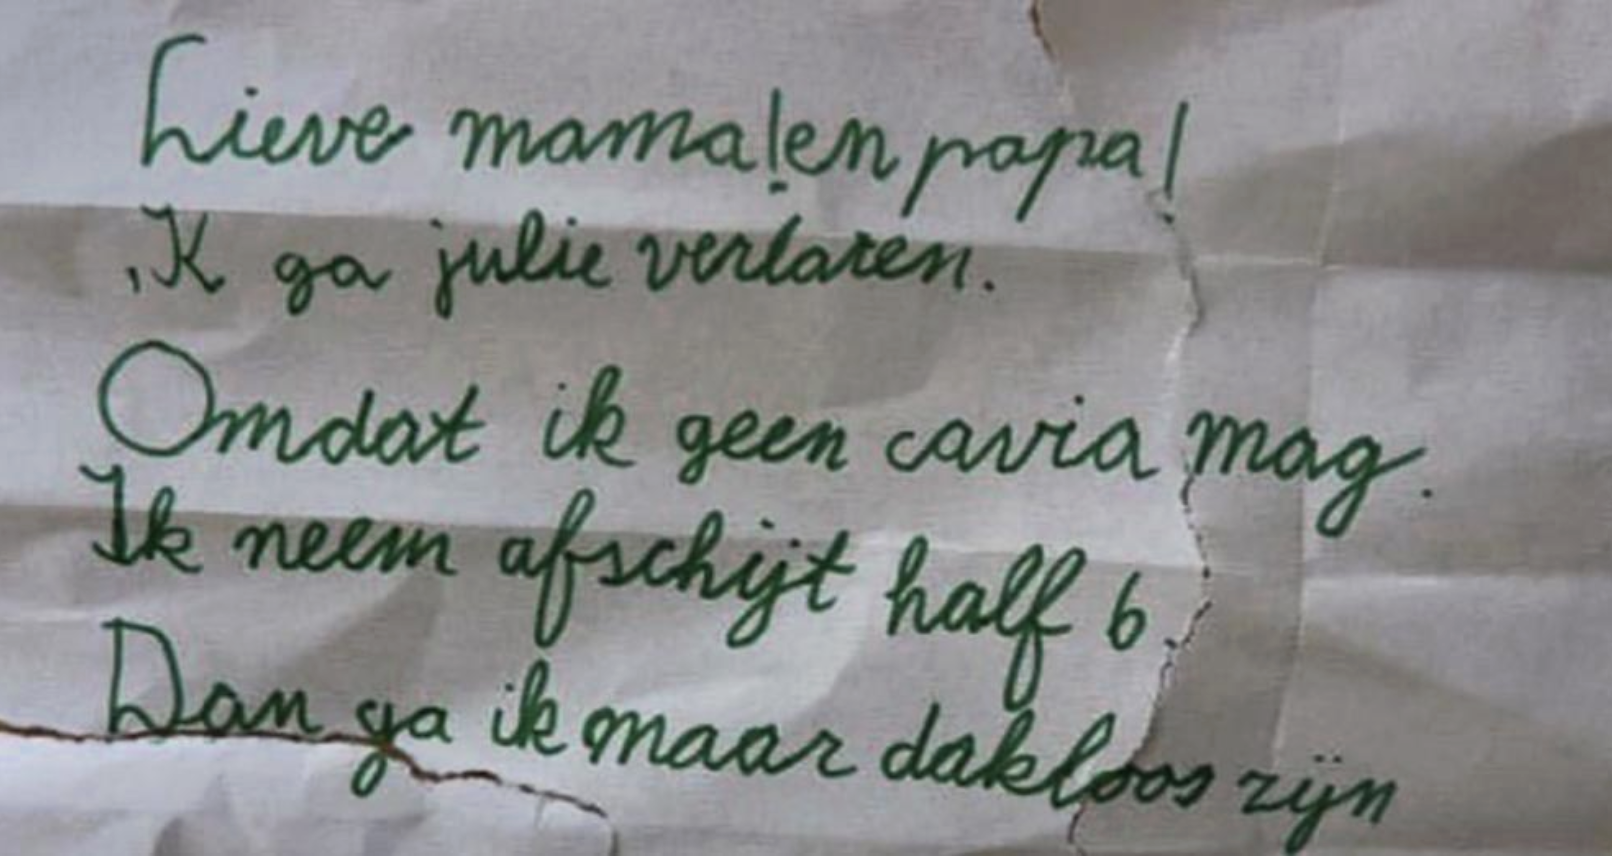 Lieve mama! en papa!
Ik ga julie verlaten.
Omdat ik geen cavia mag.
Ik neem afschijt half 6.
Dan ga ik maar dakloos zijn